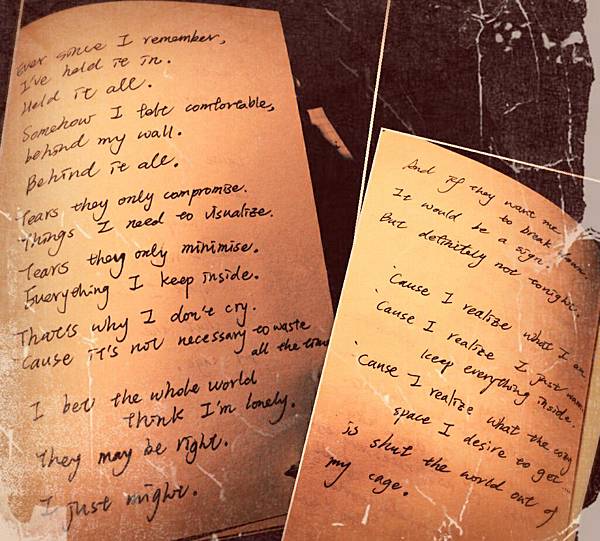 Ever since I remember,
I've held it in.
Held it all.
Somehow I felt comfortable,
behind my wall.
Behind it all.
Tears they only compromise.
Things I need to visualize.
Tears they only minimise.
Everything I keep inside.
That's why I don't cry.
'Cause it's not necessary to waste
all the time
I bet the whole world
think I'm lonely.
They may be right.
I just might.
And if they want me
to break down.
It would be a sign.
But definitely not tonight.
'Cause I realize what I am
'Cause I realize I just
keep everything inside.
'Cause I realize what the cozy
space I desire to get...
is shut the world out of
my cage.